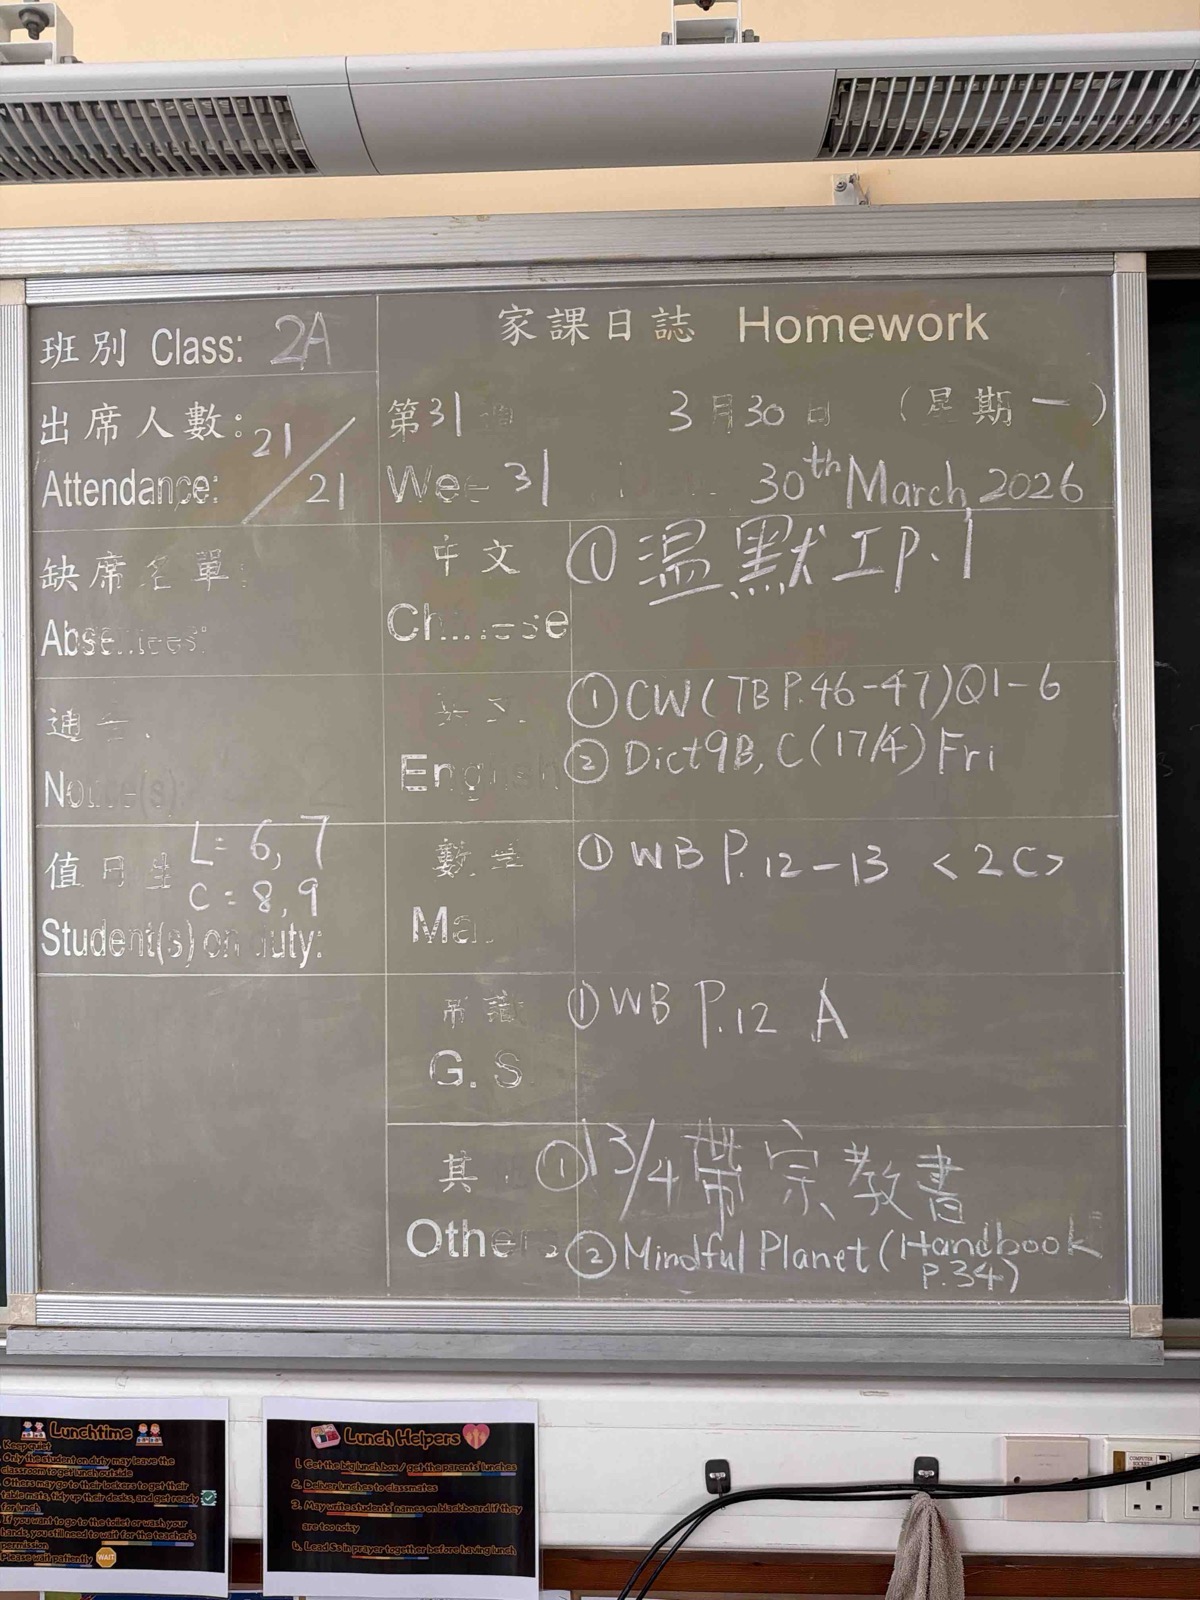 班別 Class: 2A
家課日誌 Homework
出席人數: 21/21
Attendance:
第31週 3月30日 (星期一)
Wee 31 30th March, 2026
缺席名單:
Absentees:
中文
Chinese
① 溫默工p.1
Notice(s):
English
① CW(TB P.46-47)Q1-6
② Dict9B, C(17/4) Fri
值日生 L= 6, 7
C = 8, 9
Student(s) on duty:
數學
Ma
① WB P.12-13 <2C>
常識
G. S
① WB P.12 A
其
Others
① 13/4帶宗教書
② Mindful Planet (Handbook
P.34)
Lunchtime
Keep quiet
Only the student on duty may leave the
classroom to get lunch outside
Others may go to their lockers to get their
table mats, tidy up their desks, and get ready
for lunch
If you want to go to the toilet or wash your
hands, you still need to wait for the teacher's
permission
Please wait patiently WAIT
Lunch Helpers
1. Get the big lunch box / get the parents' lunches
2. Deliver lunches to classmates
3. May write students' names on blackboard if they
are too noisy
4. Lead Ss in prayer together before having lunch
COMPUTER